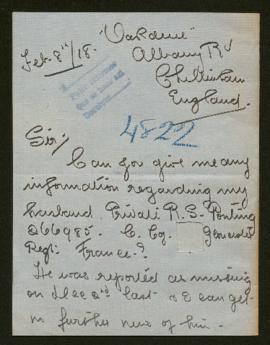 "Vardene"
Feb. 8th/18. Albany Rd
Cheltenham
England.
4822
Sir/
Can you give me any
information regarding my
husband Private R. S. Ponting
266985. C. Coy. Gloucester
Regt: France.?
He was reported as missing
on Dec 2nd last. & I can get
no further news of him.